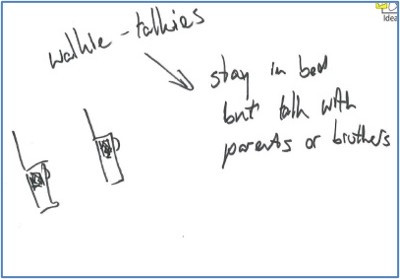 Idea
walkie-talkies
stay in bed
but talk with
parents or brothers